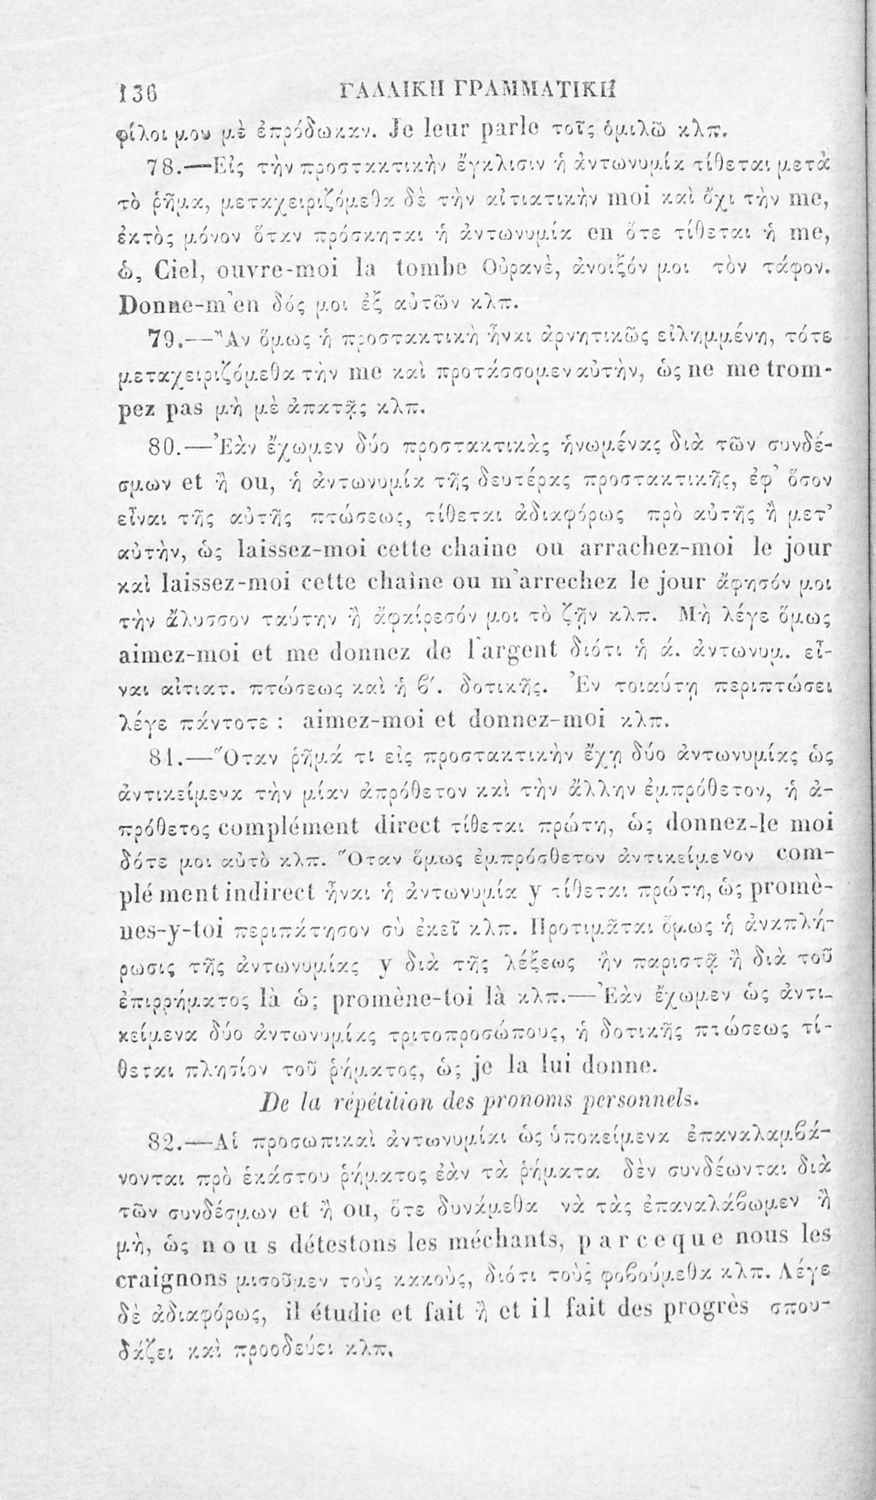 136 ΓΑΛΛΙΚΗ ΓΡΑΜΜΑΤΙΚΗ
φίλοι μου μὲ ἐπρόδωκαν. Je leur parle τοῖς ὁμιλῶ κλπ.
78.—Εἰς τὴν προστακτικὴν ἔγκλισιν ἡ ἀντωνυμία τίθεται μετὰ
τὸ ῥῆμα, μεταχειριζόμεθα δὲ τὴν αἰτιατικὴν moi καὶ ὄχι τὴν me,
ἐκτὸς μόνον ὅταν πρόσκηται ἡ ἀντωνυμία en ὅτε τίθεται ἡ me,
ὡ, Ciel, ouvre-moi la tombe Οὐρανὲ, ἀνοιξόν μοι τὸν τάφον.
Donne-m'en δός μοι ἐξ αὐτῶν κλπ.
79.—Ἂν ὅμως ἡ προστακτικὴ ἦναι ἀρνητικῶς εἰλημμένη, τότε
μεταχειριζόμεθα τὴν me καὶ προτάσσομεν αὐτὴν, ὡς ne me trom-
pez pas μὴ μὲ ἀπατᾷς κλπ.
80.—Ἐὰν ἔχωμεν δύο προστακτικὰς ἡνωμένας διὰ τῶν συνδέ-
σμων et ἢ ou, ἡ ἀντωνυμία τῆς δευτέρας προστακτικῆς, ἐφ' ὅσον
εἶναι τῆς αὐτῆς πτώσεως, τίθεται ἀδιαφόρως πρὸ αὐτῆς ἢ μετ'
αὐτὴν, ὡς laissez-moi cette chaine ou arrachez-moi le jour
καὶ laissez-moi cette chaîne ou m'arrechez le jour ἄφησόν μοι
τὴν ἄλυσσον ταύτην ἢ ἀφαίρεσόν μοι τὸ ζῆν κλπ. Μὴ λέγε ὅμως
aimez-moi et me donnez de l'argent διότι ἡ ά. ἀντωνυμ. εἶ-
ναι αἰτιατ. πτώσεως καὶ ἡ β΄. δοτικῆς. Ἐν τοιαύτῃ περιπτώσει
λέγε πάντοτε : aimez-moi et donnez-moi κλπ.
81.—Ὅταν ῥῆμά τι εἰς προστακτικὴν ἔχῃ δύο ἀντωνυμίας ὡς
ἀντικείμενα τὴν μίαν ἀπρόθετον καὶ τὴν ἄλλην ἐμπρόθετον, ἡ ἀ-
πρόθετος complément direct τίθεται πρώτη, ὡς donnez-le moi
δότε μοι αὐτὸ κλπ. Ὅταν ὅμως ἐμπρόσθετον ἀντικείμενον com-
plé ment indirect ἦναι ἡ ἀντωνυμία y τίθεται πρώτη, ὡς promè-
nes-y-toi περιπάτησον σὺ ἐκεῖ κλπ. Προτιμᾶται ὅμως ἡ ἀναπλή-
ρωσις τῆς ἀντωνυμίας y διὰ τῆς λέξεως ἣν παριστᾷ ἢ διὰ τοῦ
ἐπιρρήματος là ὡς promène-toi là κλπ.—Ἐὰν ἔχωμεν ὡς ἀντι-
κείμενα δύο ἀντωνυμίας τριτοπροσώπους, ἡ δοτικῆς πτώσεως τί-
θεται πλησίον τοῦ ῥήματος, ὡς je la lui donne.
De la répétition des pronoms personnels.
82.—Αἱ προσωπικαὶ ἀντωνυμίαι ὡς ὑποκείμενα ἐπαναλαμβά-
νονται πρὸ ἑκάστου ῥήματος ἐὰν τὰ ῥήματα δὲν συνδέωνται διὰ
τῶν συνδέσμων et ἢ ou, ὅτε δυνάμεθα νὰ τὰς ἐπαναλάβωμεν ἢ
μὴ, ὡς nous détestons les méchants, parceque nous les
craignons μισοῦμεν τοὺς κακοὺς, διότι τοὺς φοβούμεθα κλπ. Λέγε
δὲ ἀδιαφόρως, il étudie et fait ἢ et il fait des progrès σπου-
δάζει καὶ προοδεύει κλπ.